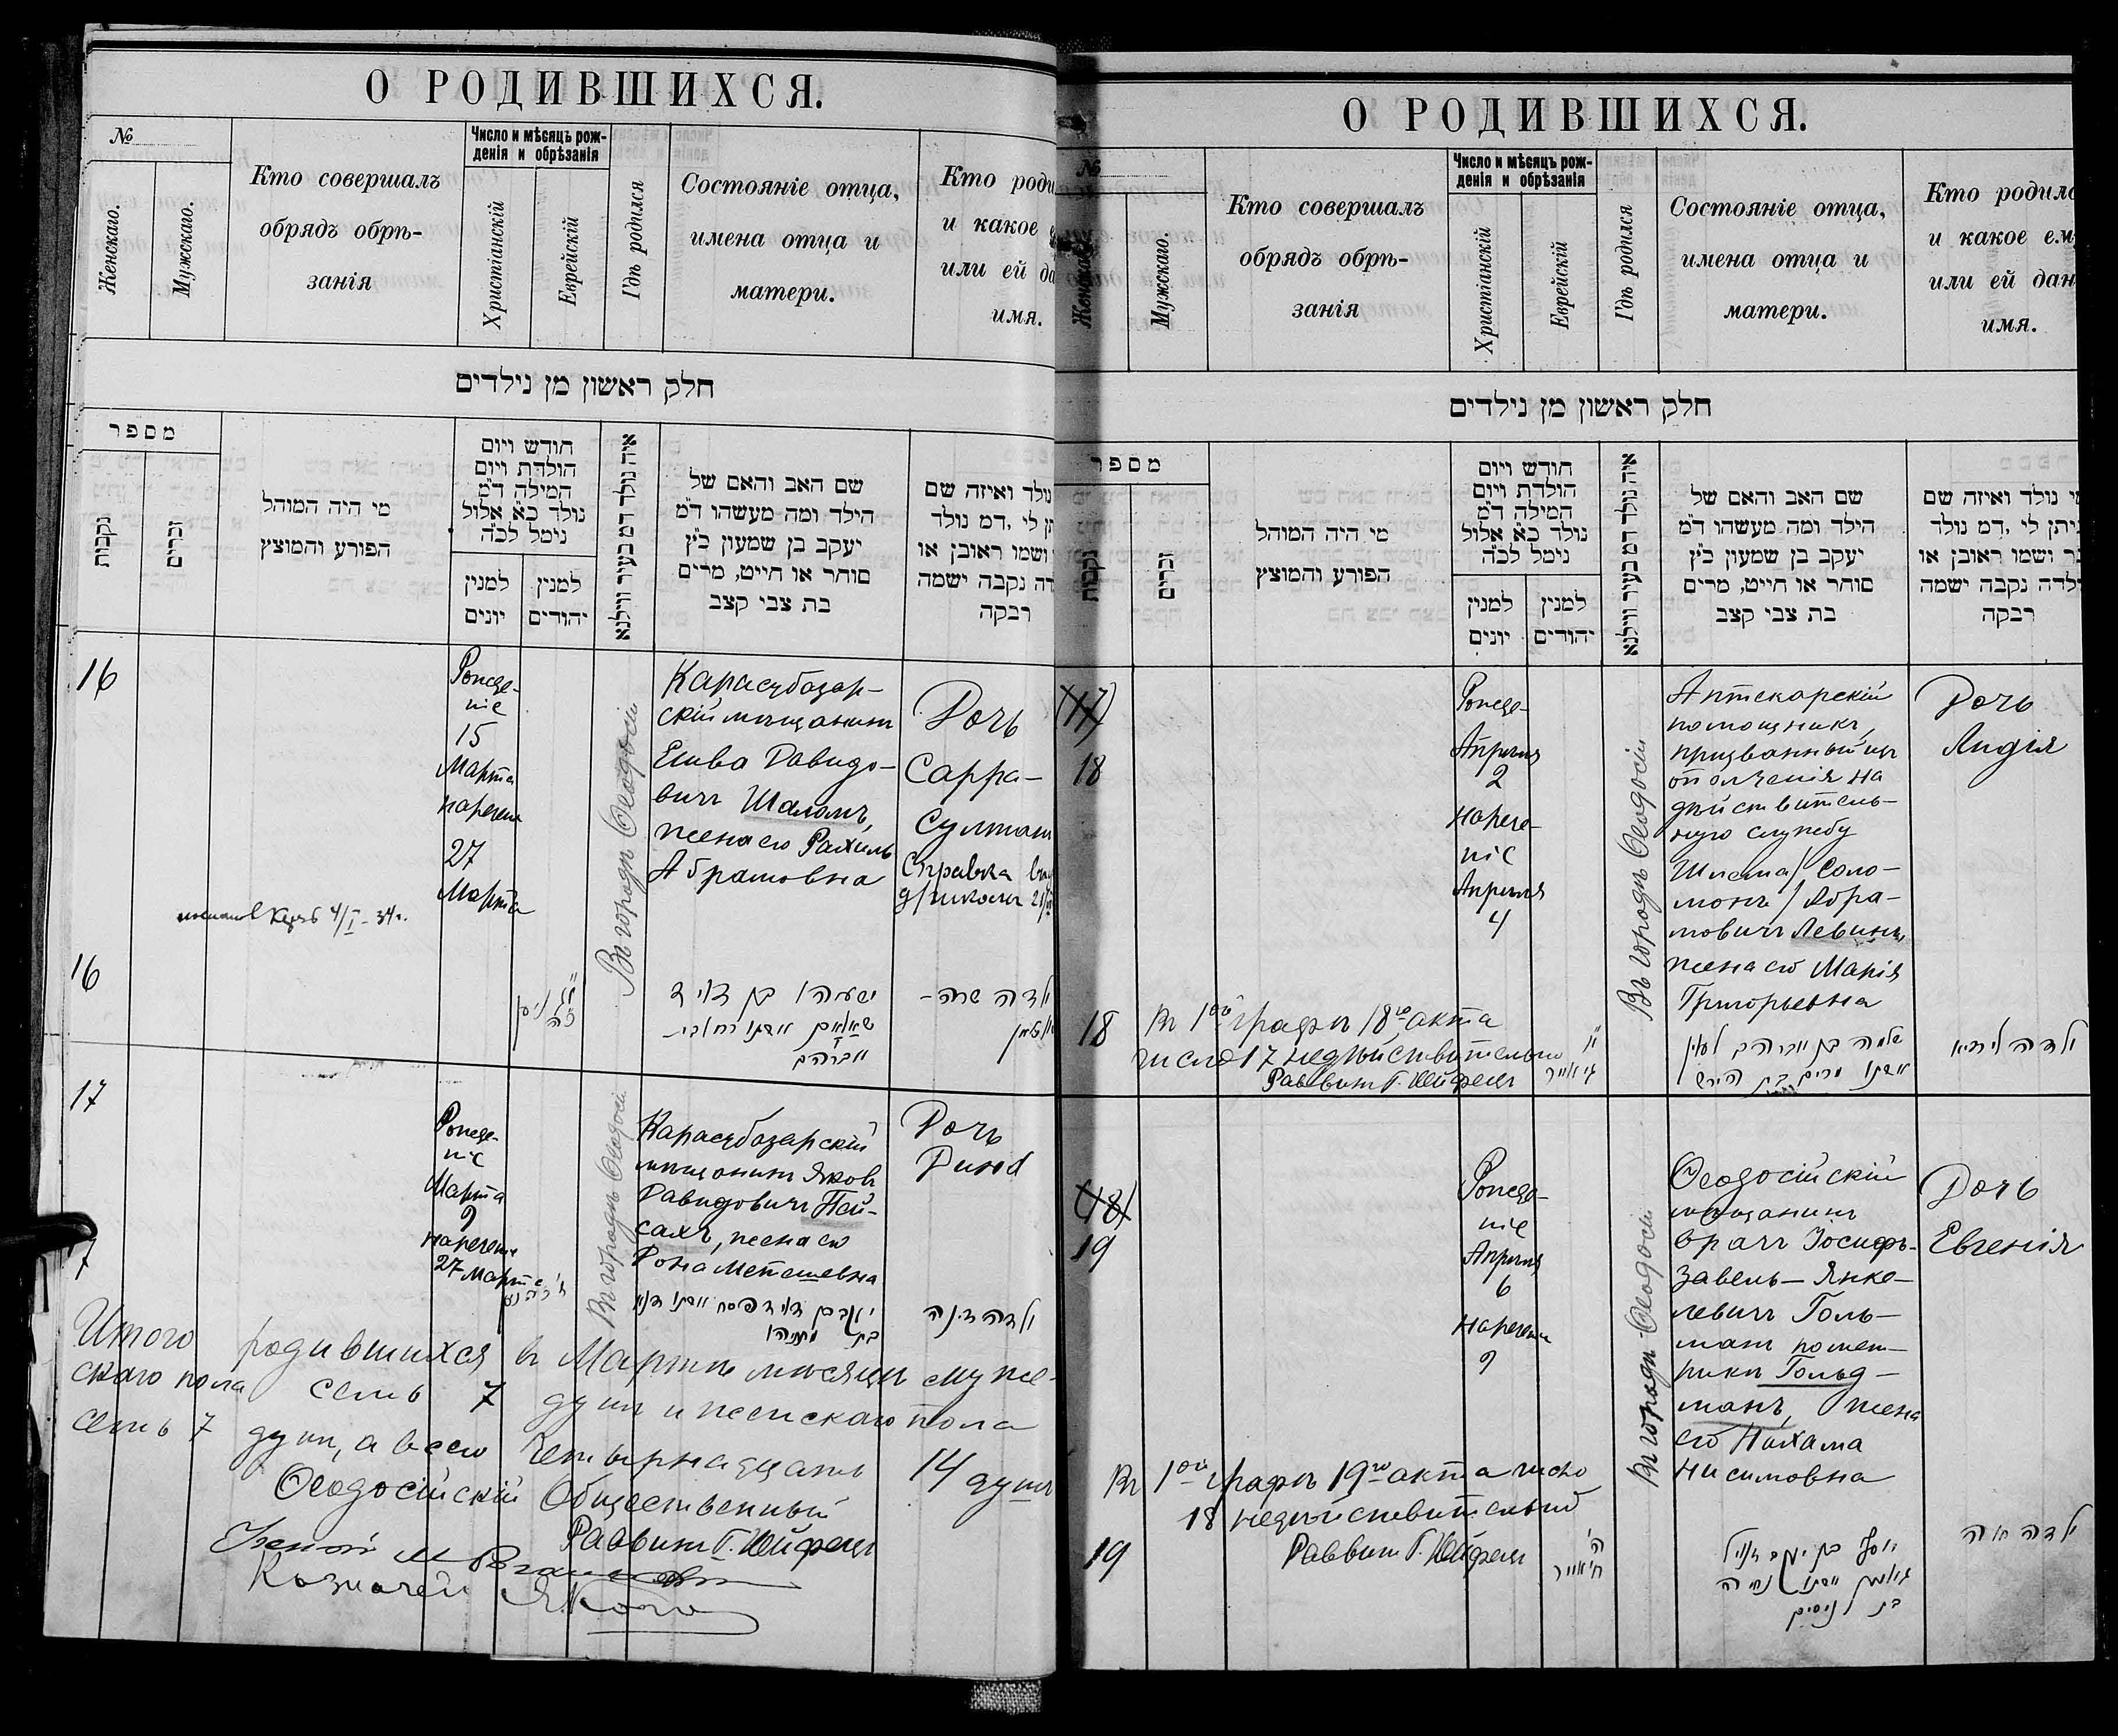 О РОДИВШИХСЯ.
№
Женскаго.
Мужскаго.
Кто совершалъ
обрядъ обрѣ-
занія
Число и мѣсяцъ рож-
денія и обрѣзанія
Христіанскій
Еврейскій
Гдѣ родился
Состояніе отца,
имена отца и
матери.
Кто роди
и какое е
или ей да
имя.
חלק ראשון מן נילדים
מספר
נקבות
זכרים
מי היה המוהל
הפורע והמוצץ
חודש ויום
הולדת ויום
המילה ד״מ
נולד כ״א אלול
נימל לכ״ה
למנין
יונים
למנין
יהודים
איה נולד דמ בעיר ווילנא
שם האב והאם של
הילד ומה מעשהו ד״מ
יעקב בן שמעון כ״ץ
סוחר או חייט, מרים
בת צבי קצב
נולד ואיזה שם
תן לי ,דמ נולד
ושמו ראובן או
דה נקבה ישמה
רבקה
16
Рожде-
ніе
15
Марта
нарѣчен
27
Марта
Въ городѣ Ѳеодосіи
Карасубазар-
скій мѣщанинъ
Ешва Давидо-
вичъ Шаломъ,
жена его Рахиль
Абрамовна
Дочь
Сарра-
Султан
Справка
4/I-34г.
16
ישעיהו בן דויד
אברהם
ילדה שרה-
17
Рожде-
ніе
Марта
9
наречен
27 Марта
Въ городѣ Ѳеодосіи
Карасубазарскій
мѣщанинъ Яковъ
Давидовичъ Пей-
сахъ, жена его
Роза
Дочь
Дина
ילדה דינה
Итого родившихся въ Мартѣ мѣсяцѣ муже-
скаго пола семь 7 душъ и женскаго пола
семь 7 душъ, а всего Четырнадцать 14 душъ
Ѳеодосійскій Общественный
Раввинъ Г.
Казначей
О РОДИВШИХСЯ.
№
Женскаго.
Мужскаго.
Кто совершалъ
обрядъ обрѣ-
занія
Число и мѣсяцъ рож-
денія и обрѣзанія
Христіанскій
Еврейскій
Гдѣ родился
Состояніе отца,
имена отца и
матери.
Кто родилс
и какое ем
или ей дан
имя.
חלק ראשון מן נילדים
מספר
נקבות
זכרים
מי היה המוהל
הפורע והמוצץ
חודש ויום
הולדת ויום
המילה ד״מ
נולד כ״א אלול
נימל לכ״ה
למנין
יונים
למנין
יהודים
איה נולד דמ בעיר ווילנא
שם האב והאם של
הילד ומה מעשהו ד״מ
יעקב בן שמעון כ״ץ
סוחר או חייט, מרים
בת צבי קצב
י נולד ואיזה שם
ניתן לי ,דמ נולד
כר ושמו ראובן או
ילדה נקבה ישמה
רבקה
(17)
18
Рожде-
Апрѣля
2
Нарече-
ніе
Апрѣля
4
Въ городѣ Ѳеодосіи
Аптекарскій
помощникъ,
призванный изъ
ополченія на
дѣйствитель-
ную службу
Шлема/Соло-
монъ/Абра-
мовичъ Левинъ,
жена его Марія
Григорьевна
Дочь
Лидія
18
Въ 1ой графѣ 18го акта
число 17 недѣйствительно
Раввинъ Г.
שלמה בן אברהם לעווין
אשתו מרים בת הירש
ילדה לידיא
(18)
19
Рожде-
ніе
Апрѣля
6
Наречен
9
Въ городѣ Ѳеодосіи
Ѳеодосійскій
мѣщанинъ
врачъ Іосифъ-
Завель-Янке-
левичъ Голь-
манъ по мет-
рикѣ Гольд-
манъ, жена
его Нахама
Нисимовна
Дочь
Евгенія
Въ 1ой графѣ 19го акта число
18 недѣйствительно
Раввинъ Г.
19
ה׳
ח׳ אייר
בת נסים
ילדה חוה